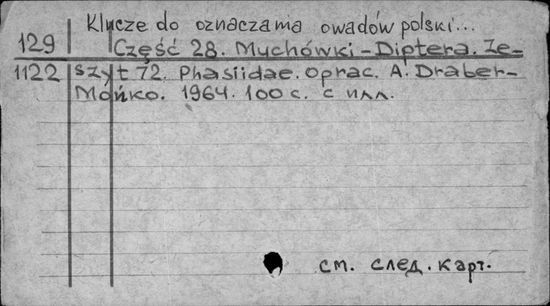 Klucze do oznaczama owadów polski...
129 Część 28. Muchówki-Diptera. Ze-
1122 szyt 72. Phasiidae. oprac. A. Draber-
Mońko. 1964. 100 с. с илл.
см. след. карт.